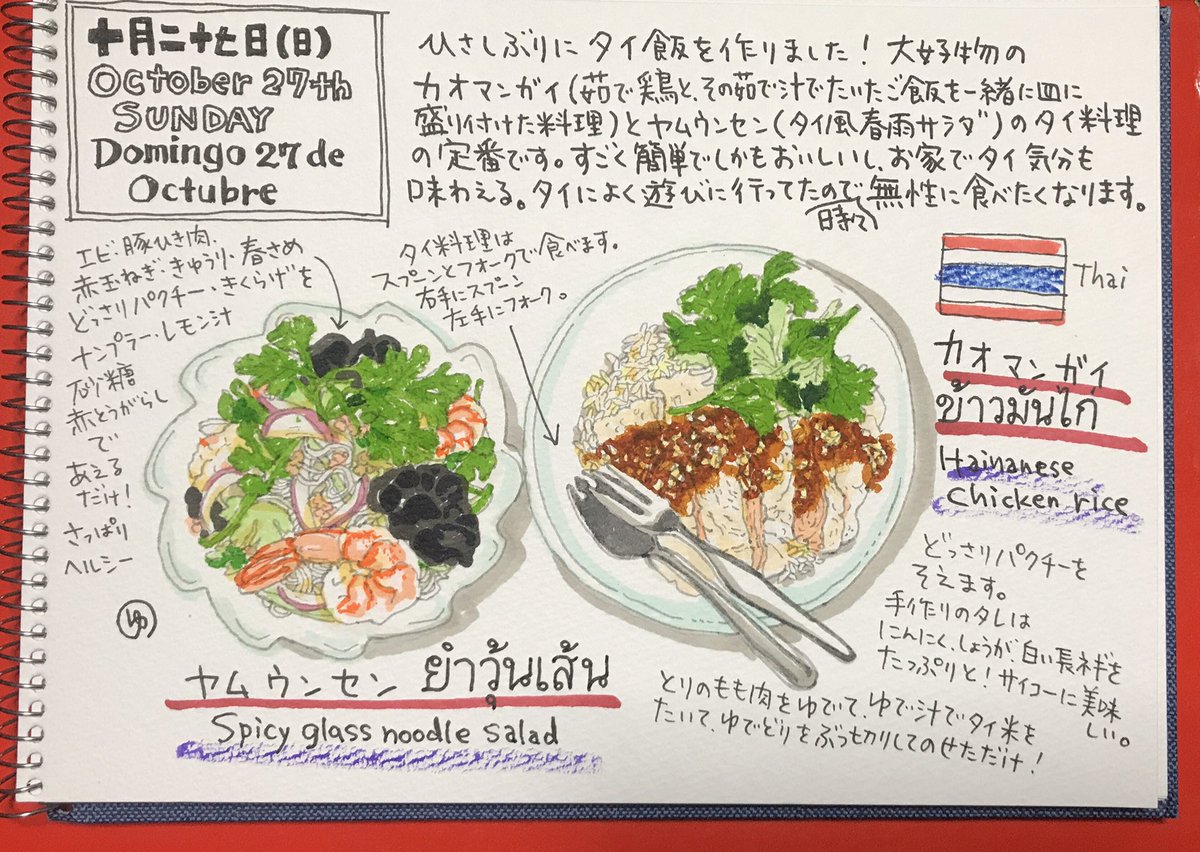 十月二十七日(日)
October 27th
SUNDAY
Domingo 27 de
Octubre
ひさしぶりにタイ飯を作りました! 大好物の
カオマンガイ(茹で鶏と、その茹で汁でたいたご飯を一緒に皿に
盛り付けた料理)とヤムウンセン(タイ風春雨サラダ)のタイ料理
の定番です。すごく簡単でしかもおいしいし、お家でタイ気分も
味わえる。タイによく遊びに行ってたので、無性に食べたくなります。
時々
エビ・豚ひき肉、
赤玉ねぎ・きゅうり・春さめ
どっさりパクチー・きくらげを
ナンプラー・レモン汁
砂糖
赤とうがらし
で
あえる
だけ!
さっぱり
ヘルシー
ゆ
タイ料理は
スプーンとフォークで食べます。
右手にスプーン
左手にフォーク。
Thai
カオマンガイ
ข้าวมันไก่
Hainanese
chicken rice
どっさりパクチーを
そえます。
手作りのタレは
にんにく、しょうが、白い長ネギを
たっぷりと!サイコーに美味
しい。
ヤムウンセン ยำวุ้นเส้น
Spicy glass noodle salad
とりのもも肉をゆでて、ゆで汁でタイ米を
たいて、ゆでどりをぶつ切りしてのせただけ!